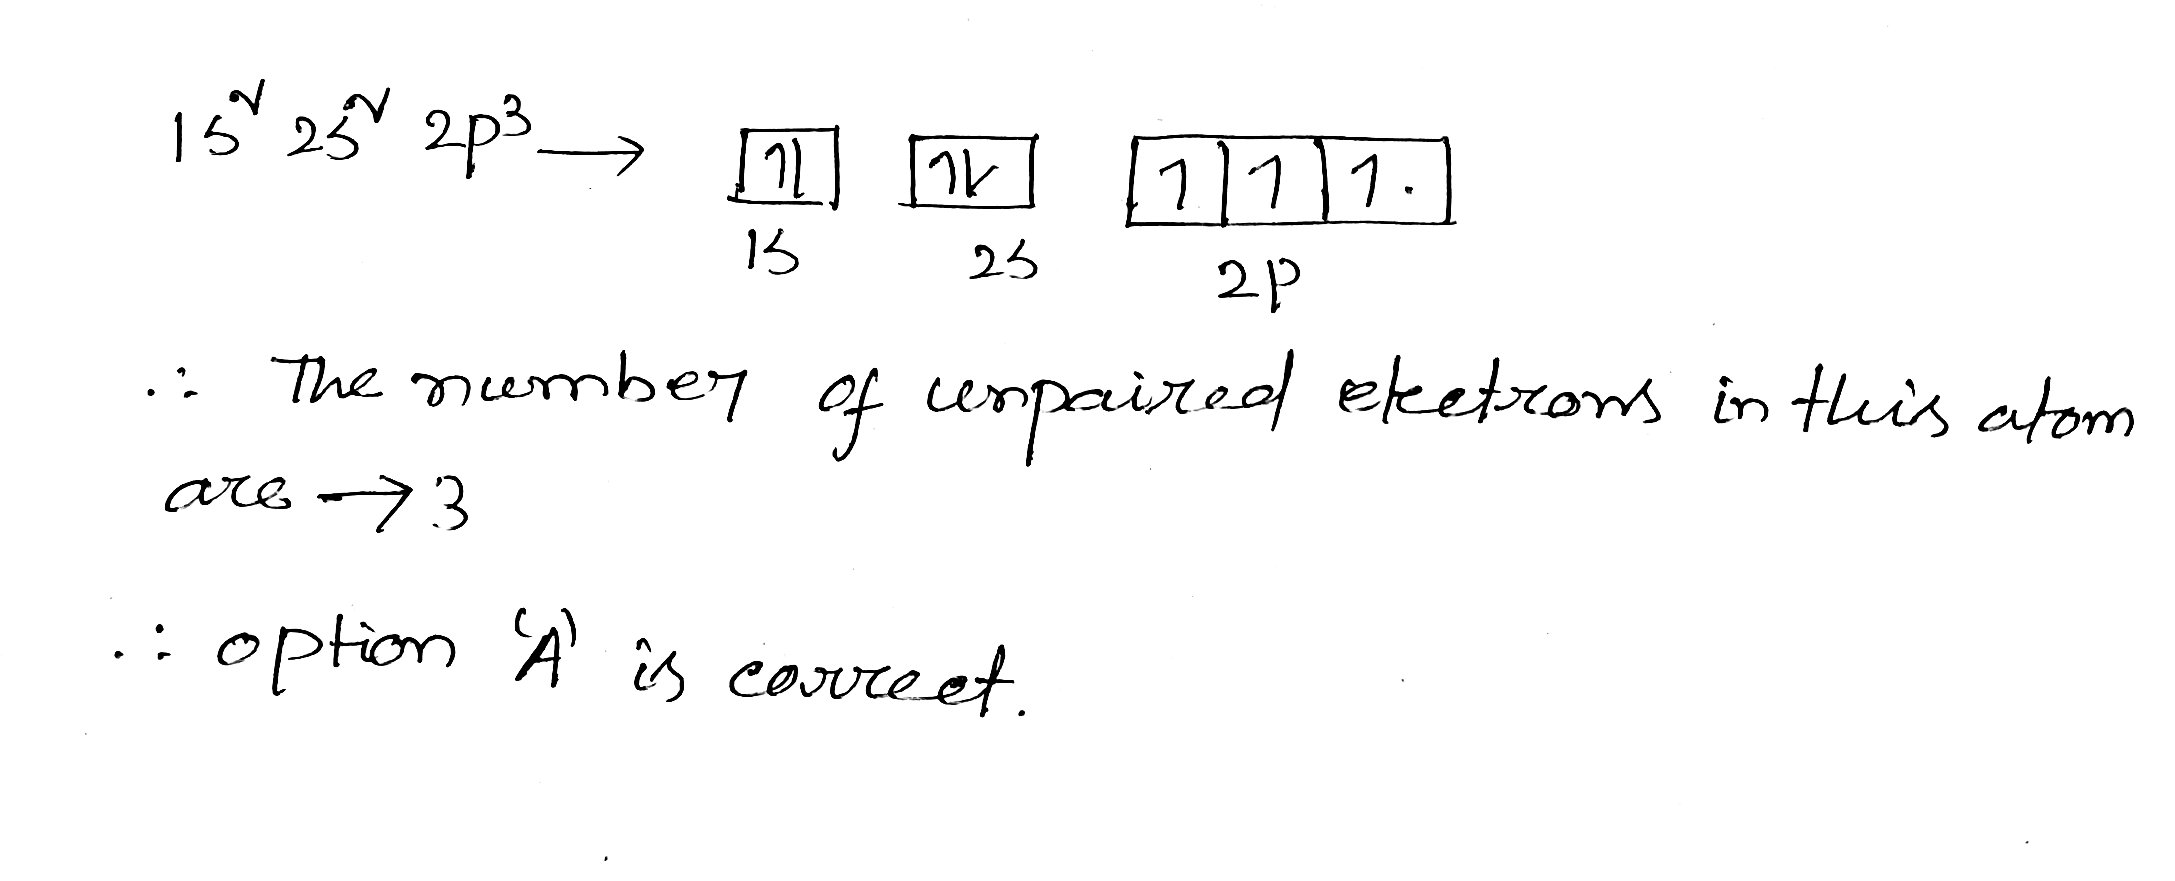 1s² 2s² 2p³ → [↿⇂] [↿⇂] [↿|↿|↿.]
1s 2s 2p
∴ The number of unpaired electrons in this atom
are → 3
∴ option 'A' is correct.